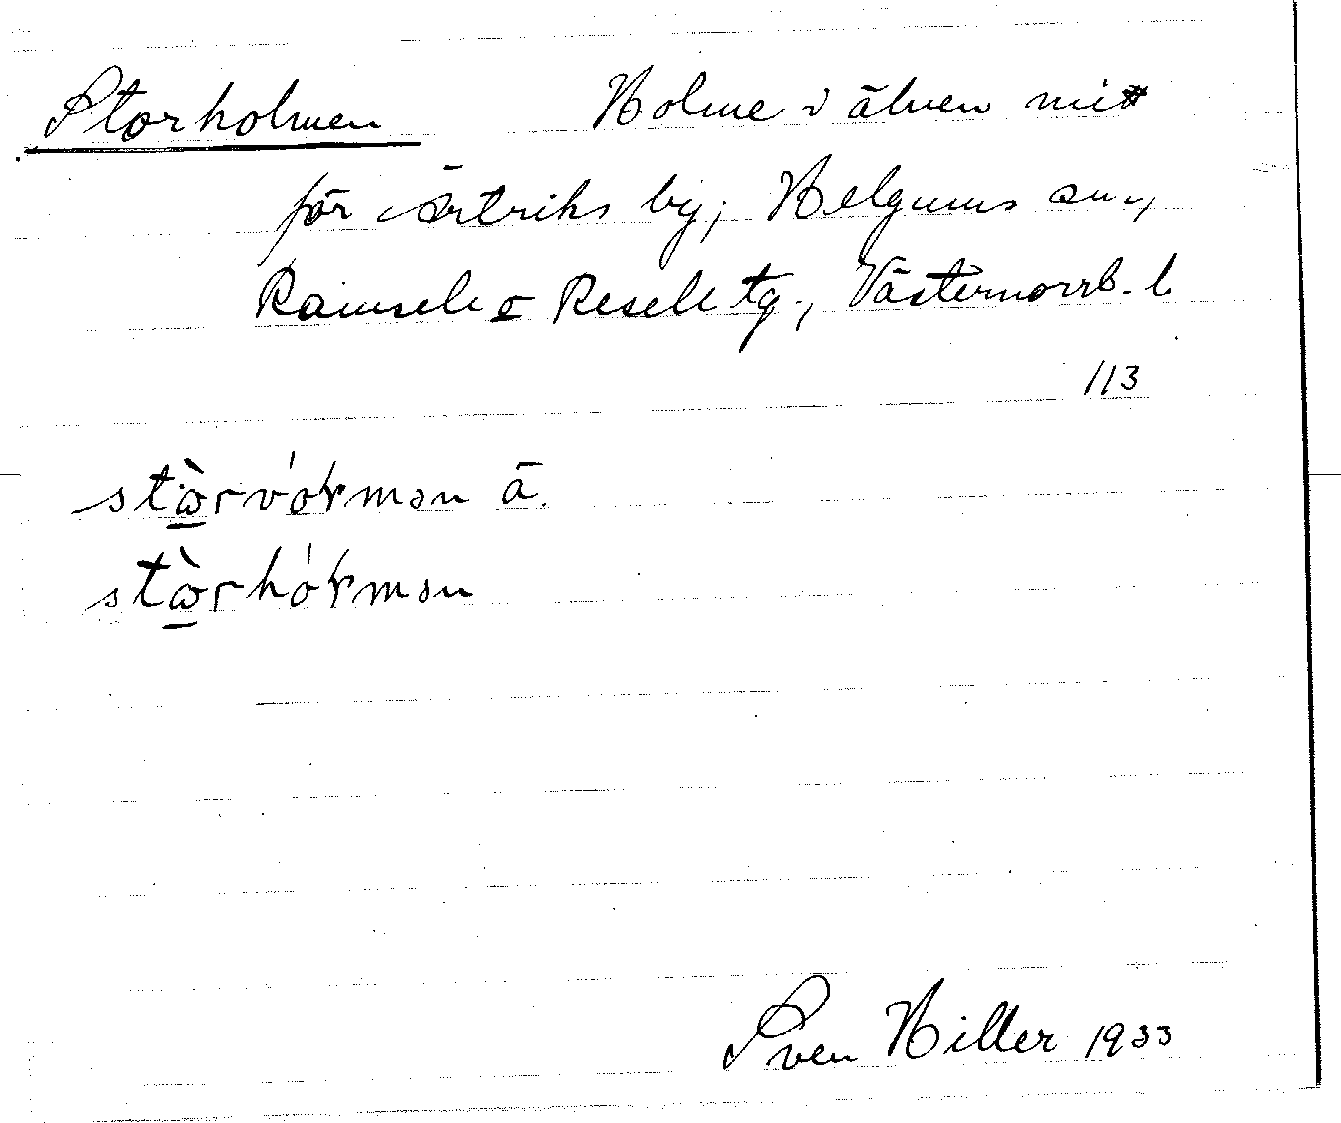 Storholmen Holme i älven mitt
för Ärtriks by, Helgums sn,
Ramsele o Resele tg., Västernorrl. l.
113
stɷ̀rvóɽmən ä.
stɷ̀rhóɽmən
Sven Hiller 1933